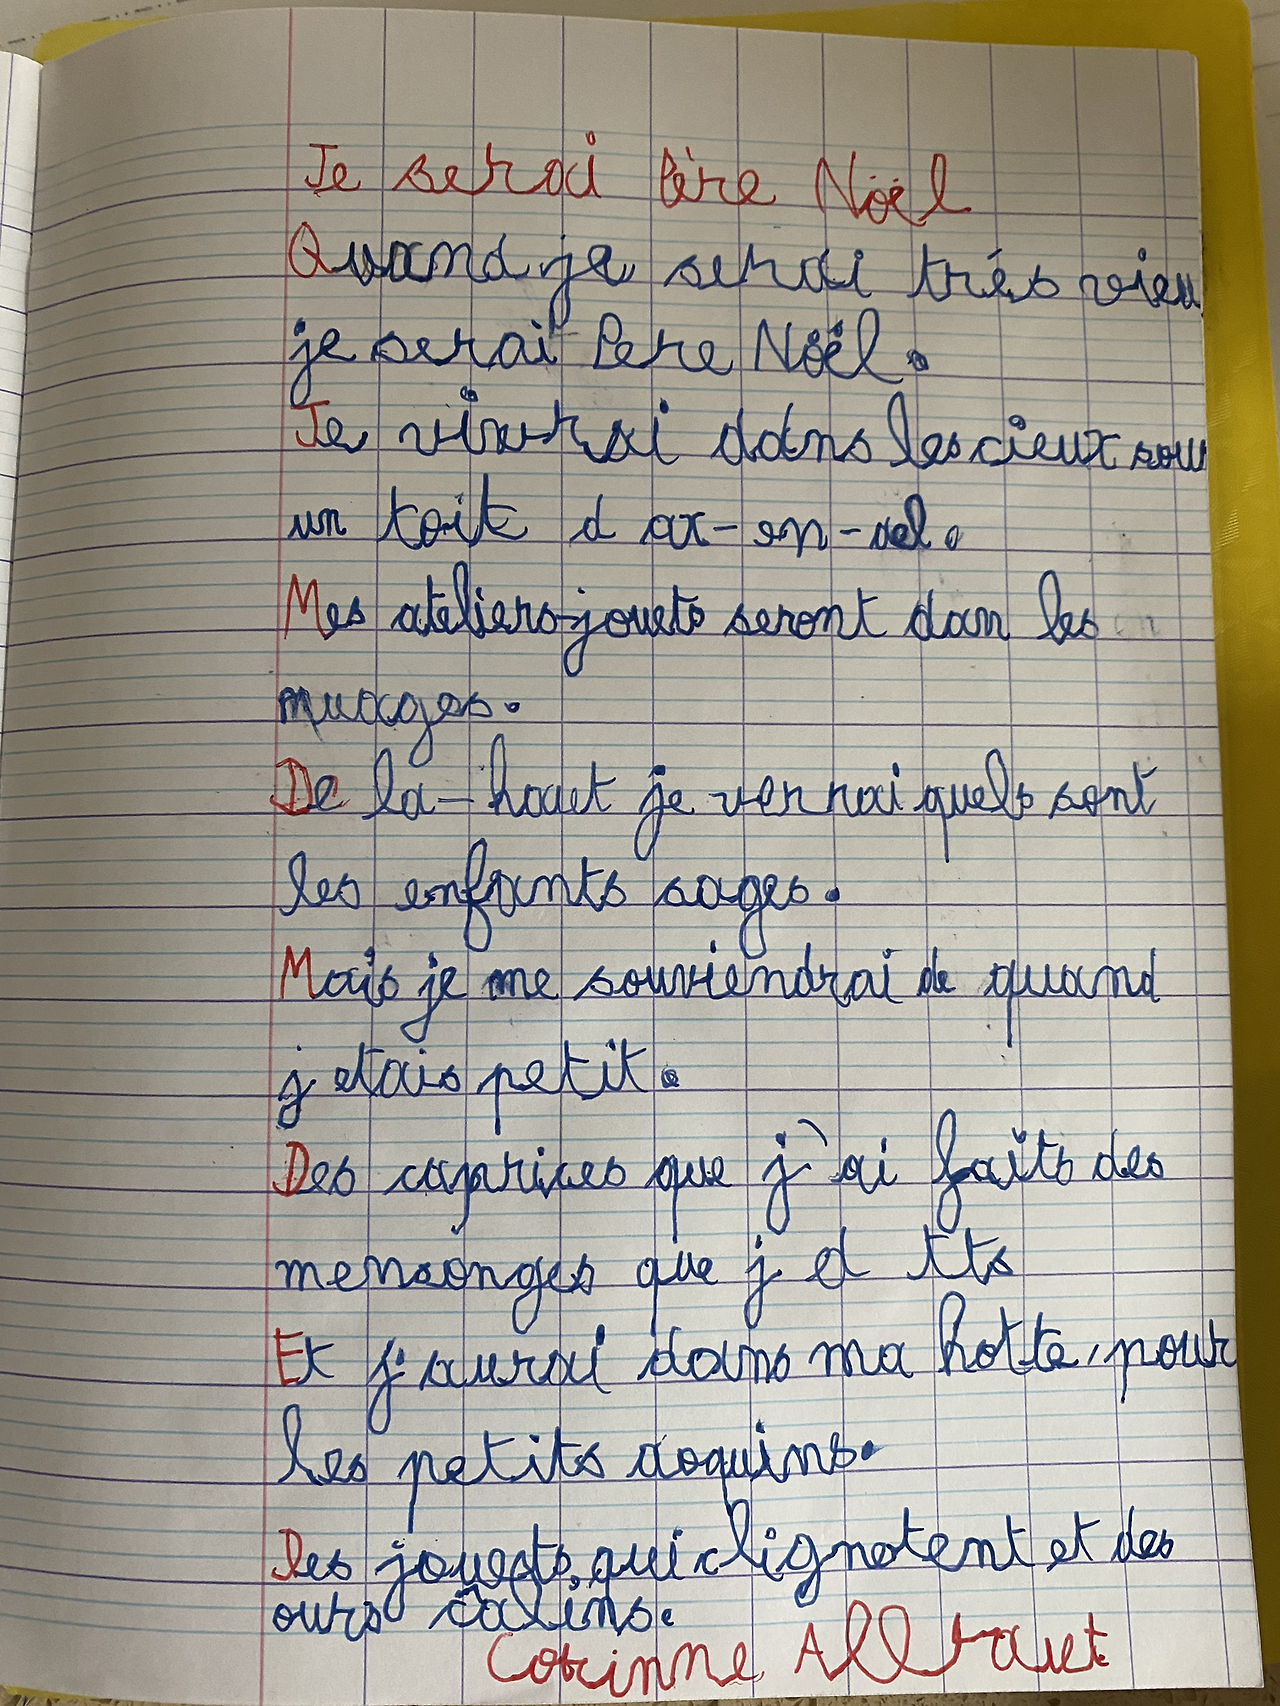 Je serai Père Noël
Quand je serai très vieu
je serai Pere Noël.
Je vivrai dans les cieux sous
un toit d ar-en-ciel.
Mes ateliers-jouets seront dan les
nuages.
De là-haut je verrai quels sont
les enfants sages.
Mais je me souviendrai de quand
j etais petit.
Des caprices que j'ai faits des
mensonges que j d its
Et j'aurai dans ma hotte, pour
les petits coquins.
Des jouets, qui clignotent et des
ours câlins.
Corinne Albaut